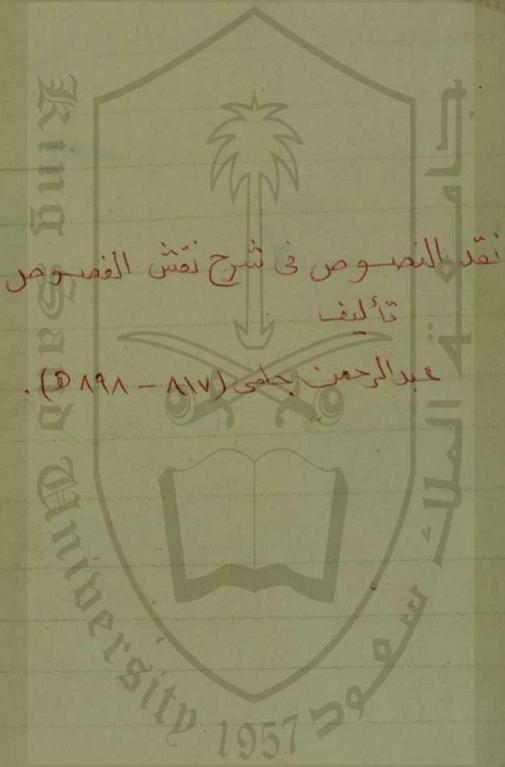 نقد النصوص فى شرح نقش الفصوص
تأليف
عبدالرحمن جامى (٨١٧ – ٨٩٨ ه).
King Saud University
1957
جامعة الملك سعود